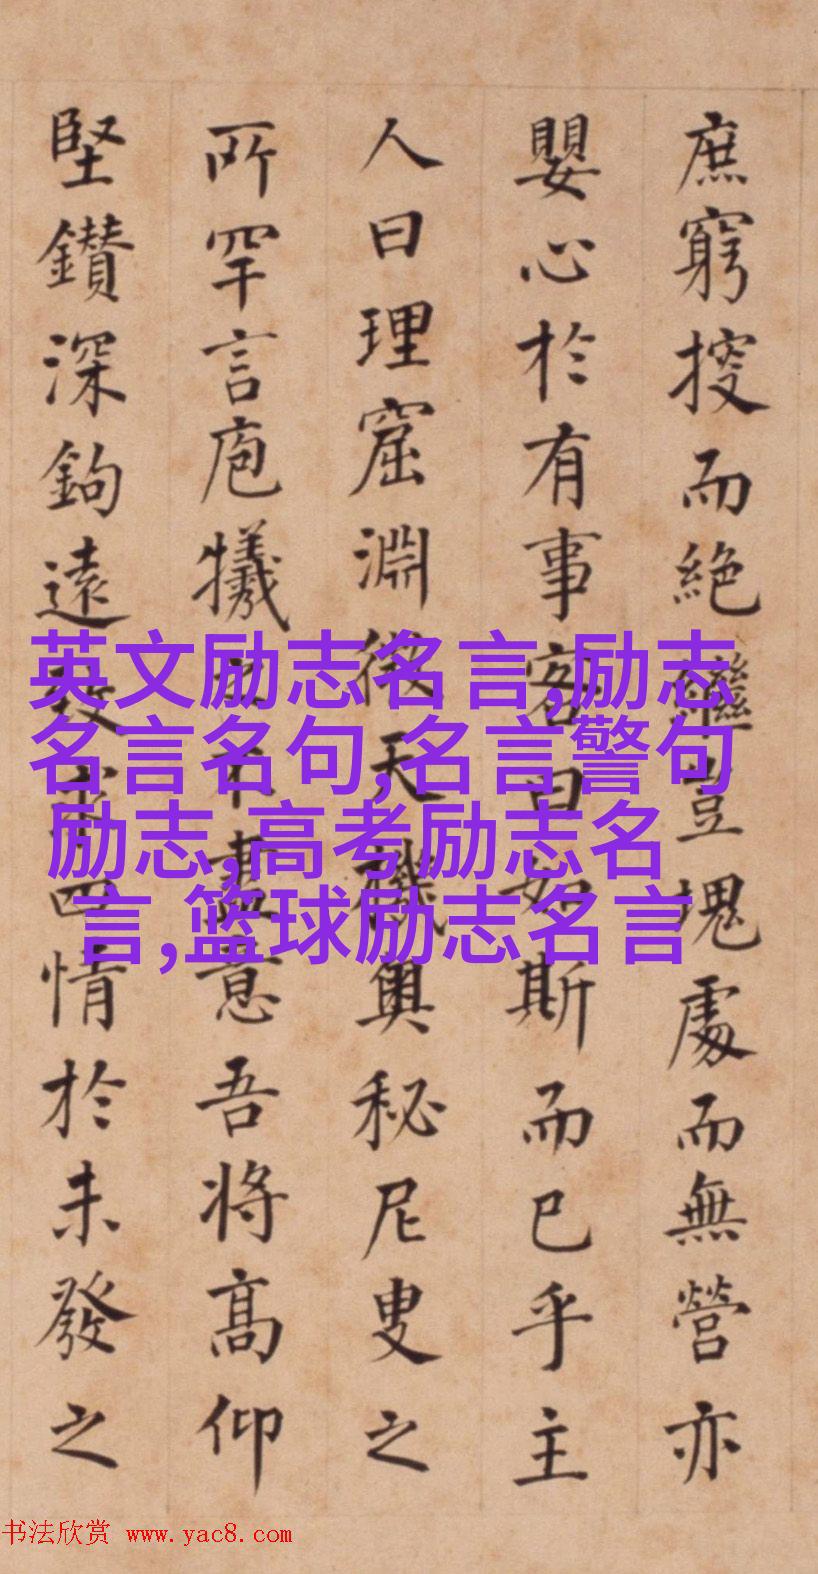 庶窮搜而絶繼豈塊處而無營亦
嬰心於有事客曰如斯而已乎主
人曰理窟淵微天機奥秘尼叟之
所罕言庖犧不盡意吾将髙仰
堅鑽深鉤遠四情於未發之
英文励志名言,励志
名言名句,名言警句
励志,高考励志名
言,篮球励志名言
书法欣赏 www.yac8.com